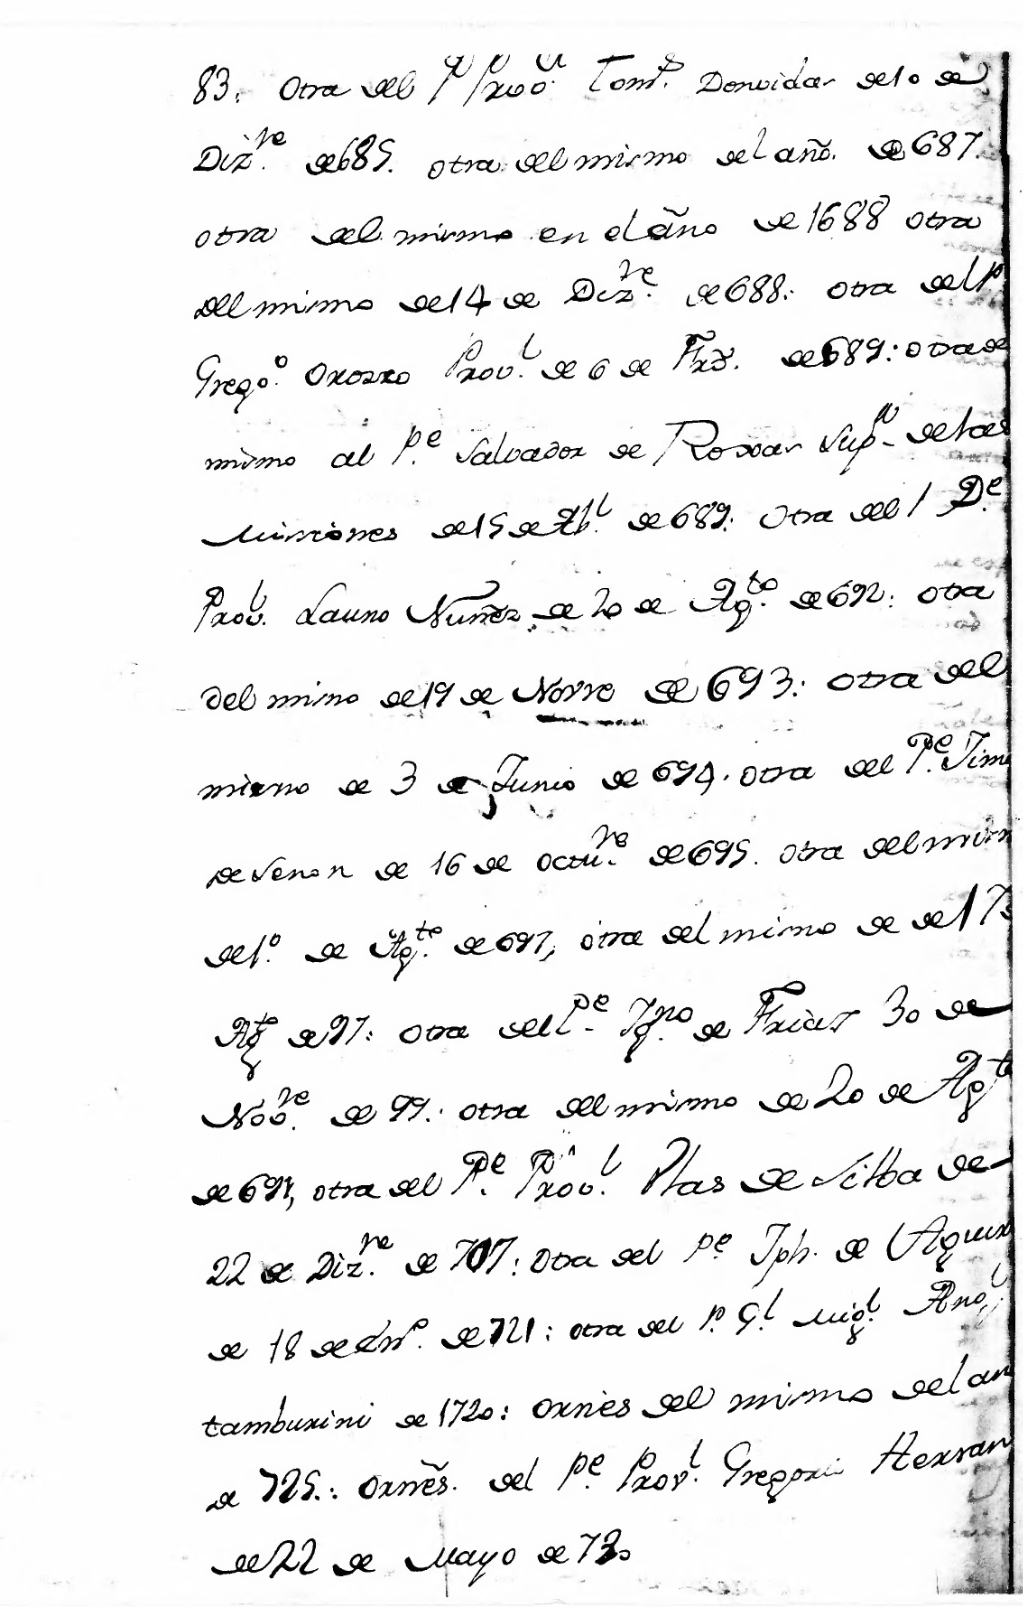 83: Otra del P Prov.ᵒˡ Tom.ˢ Donvidas de 10 de
Diz.ʳᵉ de 685. otra del mismo del año. de 687.
otra del mismo en el año de 1688 otra
del mismo de 14 de Diz.ʳᵉ de 688: otra del P.
Greg.ᵒ Orozco Prov.ˡ de 6 de de 689: otra de
mismo al P.ᵉ Salvador de Roxas Sup.ᵒʳ de las
Missiones de 15 de Ab.ˡ de 689: Otra del P.ᵉ
Prov.ˡ Lauro Nuñez de 20 de Ag.ᵗᵒ de 692: otra
del mismo de 19 de Novre de 693: otra del
mismo de 3 de Junio de 694. otra del P.ᵉ Sim
de Leon de 16 de Octu.ʳᵉ de 695. otra del mism
de 1.º de Ag.ᵗᵒ de 697, otra del mismo de de 17
Agᵗᵒ de 97: otra del P.ᵉ Ig.ⁿᵒ de Frias 30 de
Nov.ʳᵉ de 99: otra del mismo de 20 de Agᵗ
de 697, otra del P.ᵉ Prov.ˡ Blas de Silba de
22 de Diz.ʳᵉ de 707: otra del P.ᵉ Jph. de Aguir
de 18 de En.ᵒ de 721: otra del P. G.ˡ Mig.ˡ Ang.ˡ
tamburini de 1720: Ornes del mismo del an
de 725: Orñes. del P.ᵉ Prov.ˡ Gregori Herran
de 22 de Mayo de 730